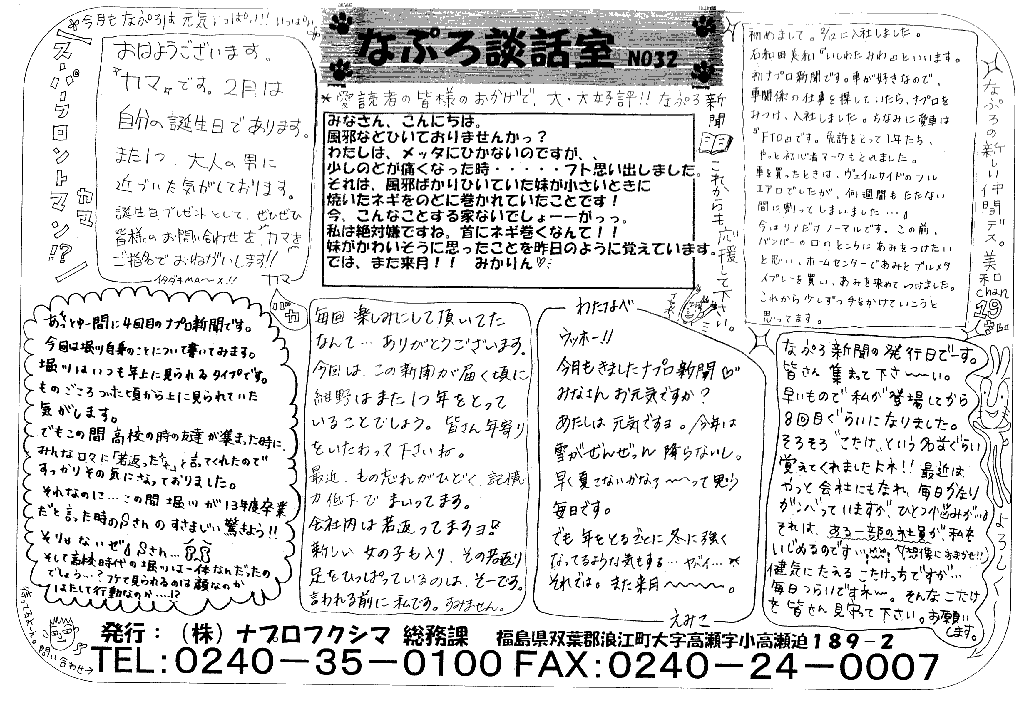 今月もなぷろは元気いっぱい!!
なぷろ談話室 NO32
*愛読者の皆様のおかげで、大・大好評!! なぷろ新聞
これからも応援して下さい。
スーパーフロントマン!?
カマ
おはようございます。
"カマ"です。2月は
自分の誕生日であります。
また1つ、大人の男に
近づいた気がしております。
誕生日プレゼントとして、ぜひぜひ
皆様のお問い合わせを"カマを
ご指名でおねがいします!!
カマ
みなさん、こんにちは。
風邪などひいておりませんかっ?
わたしは、メッタにひかないのですが、、
少しのどが痛くなった時・・・・・フト思い出しました。
それは、風邪ばかりひいていた妹が小さいときに
焼いたネギをのどに巻かれていたことです!
今、こんなことする家ないでしょーーがっっ。
私は絶対嫌ですね。首にネギ巻くなんて!!
妹がかわいそうに思ったことを昨日のように覚えています。
では、また来月!! みかりん♡
初めまして。2/12に入社しました。
石和田美和"いしわたみわ"といいます。
初ナプロ新聞です。車が好きなので、
車関係の仕事を探していたら、ナプロを
みつけ、入社しました。ちなみに愛車は
『FTO』です。免許をとって1年たち、
やっと初心者マークもとれました。
車を買ったときは、ヴェイルサイドのフル
エアロでしたが、何週間もたたない
間に割ってしまいました…。
今はリアだけノーマルです。この前、
バンパーの口のところにあみをつけたい
と思い、ホームセンターであみとブルメタ
スプレーを買い、あみを染めてつけました。
これから少しずつ手をかけていこうと
思ってます。
なぷろの新しい仲間デス。美和chan
19
あっとゆー間に4回目のナプロ新聞です。
今回は堀川自身のことについて書いてみます。
堀川はいつも年上に見られるタイプです。
ものごころついた頃から上に見られていた
気がします。
でもこの間 高校の時の友達が集まった時に、
みんな口々に「若返ったな」と言ってくれたので
すっかりその気になっておりました。
それなのに…この間 堀川が13年度卒業
だと言った時のSさんのすさまじい驚きよう!!
そりゃないぜSさん…
そして高校時代の堀川は一体なんだったの
でしょう…?フケて見られるのは顔なのか
はたして行動なのか…!?
毎回 楽しみにして頂いてた
なんて… ありがとうございます。
今回は、この新聞が届く頃に
紺野はまた1つ年をとって
いることでしょう。皆さん年寄り
をいたわって下さいね。
最近、もの忘れがひどく、記憶
力低下で まいってます。
会社内は若返ってますヨ!
新しい 女の子も入り、その若返り
足をひっぱっているのは、そーです。
言われる前に私です。すみません。
わたなべ
ウッホー!!
今月もきましたナプロ新聞♡
みなさんお元気ですか?
あたしは 元気ですョ。今年は
雪がぜんぜっん 降らないし。
早く夏てないかなァ〜〜って思う
毎日です。
でも年をとるごとに冬に強く
なってるような気もする…ヤバイ…*
それでは。また来月〜〜〜〜。
えみこ
なぷろ新聞の発行日でーす。
皆さん集まって下さ〜〜い。
早いもので私が登場してから
8回目ぐらいになりました。
そろそろ"こたけ"という名まえぐらい
覚えてくれましたよネ!! 最近は
やっと会社にもなれ、毎日かなり
がんばっていますが、ひとつ悩みが…。
それは、ある一部の社員が私を
いじめるのです…。
健気にたえるこたけっちですが…
毎日つらいですネ〜。そんなこたけ
を皆さん見守って下さい。お願い
します。
よろしく
お問い合わせ→
発行：（株）ナプロフクシマ 総務課 福島県双葉郡浪江町大字高瀬字小高瀬迫189-2
TEL:0240-35-0100 FAX:0240-24-0007